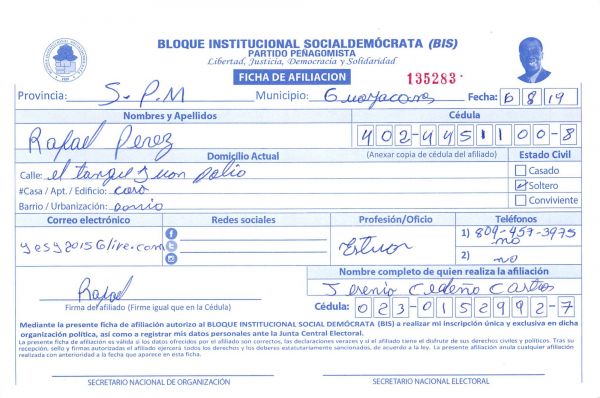 BLOQUE INSTITUCIONAL SOCIALDEMÓCRATA (BIS)
PARTIDO PEÑAGOMISTA
Libertad, Justicia, Democracia y Solidaridad
FICHA DE AFILIACION
135283
Provincia: S.P.M Municipio: Guayacanes Fecha: 6 8 19
Nombres y Apellidos Cédula
Rafael Perez 402-4451100-8
Domicilio Actual (Anexar copia de cédula del afiliado) Estado Civil
Calle: el tanque Juan palio Casado
#Casa / Apt. / Edificio: Soltero
Barrio / Urbanización: Conviviente
Correo electrónico Redes sociales Profesión/Oficio Teléfonos
yesy2015@live.com 1) 809-457-3975
no
2) no
Nombre completo de quien realiza la afiliación
Rafael Cedeño Castro
Firma del afiliado (Firme igual que en la Cédula) Cédula: 023-0152992-7
Mediante la presente ficha de afiliación autorizo al BLOQUE INSTITUCIONAL SOCIAL DEMÓCRATA (BIS) a realizar mi inscripción única y exclusiva en dicha
organización política, así como a registrar mis datos personales ante la Junta Central Electoral.
La presente ficha de afiliación es válida si los datos ofrecidos por el afiliado son correctos, las declaraciones veraces y si el afiliado tiene el disfrute de sus derechos civiles y políticos. Tras su
recepción, sello y firmas autorizadas el afiliado ejercerá todos los derechos y los deberes estatutariamente sancionados, de acuerdo a la ley. La presente afiliación anula cualquier afiliación
realizada con anterioridad a la fecha que aparece en esta ficha.
SECRETARIO NACIONAL DE ORGANIZACIÓN SECRETARIO NACIONAL ELECTORAL